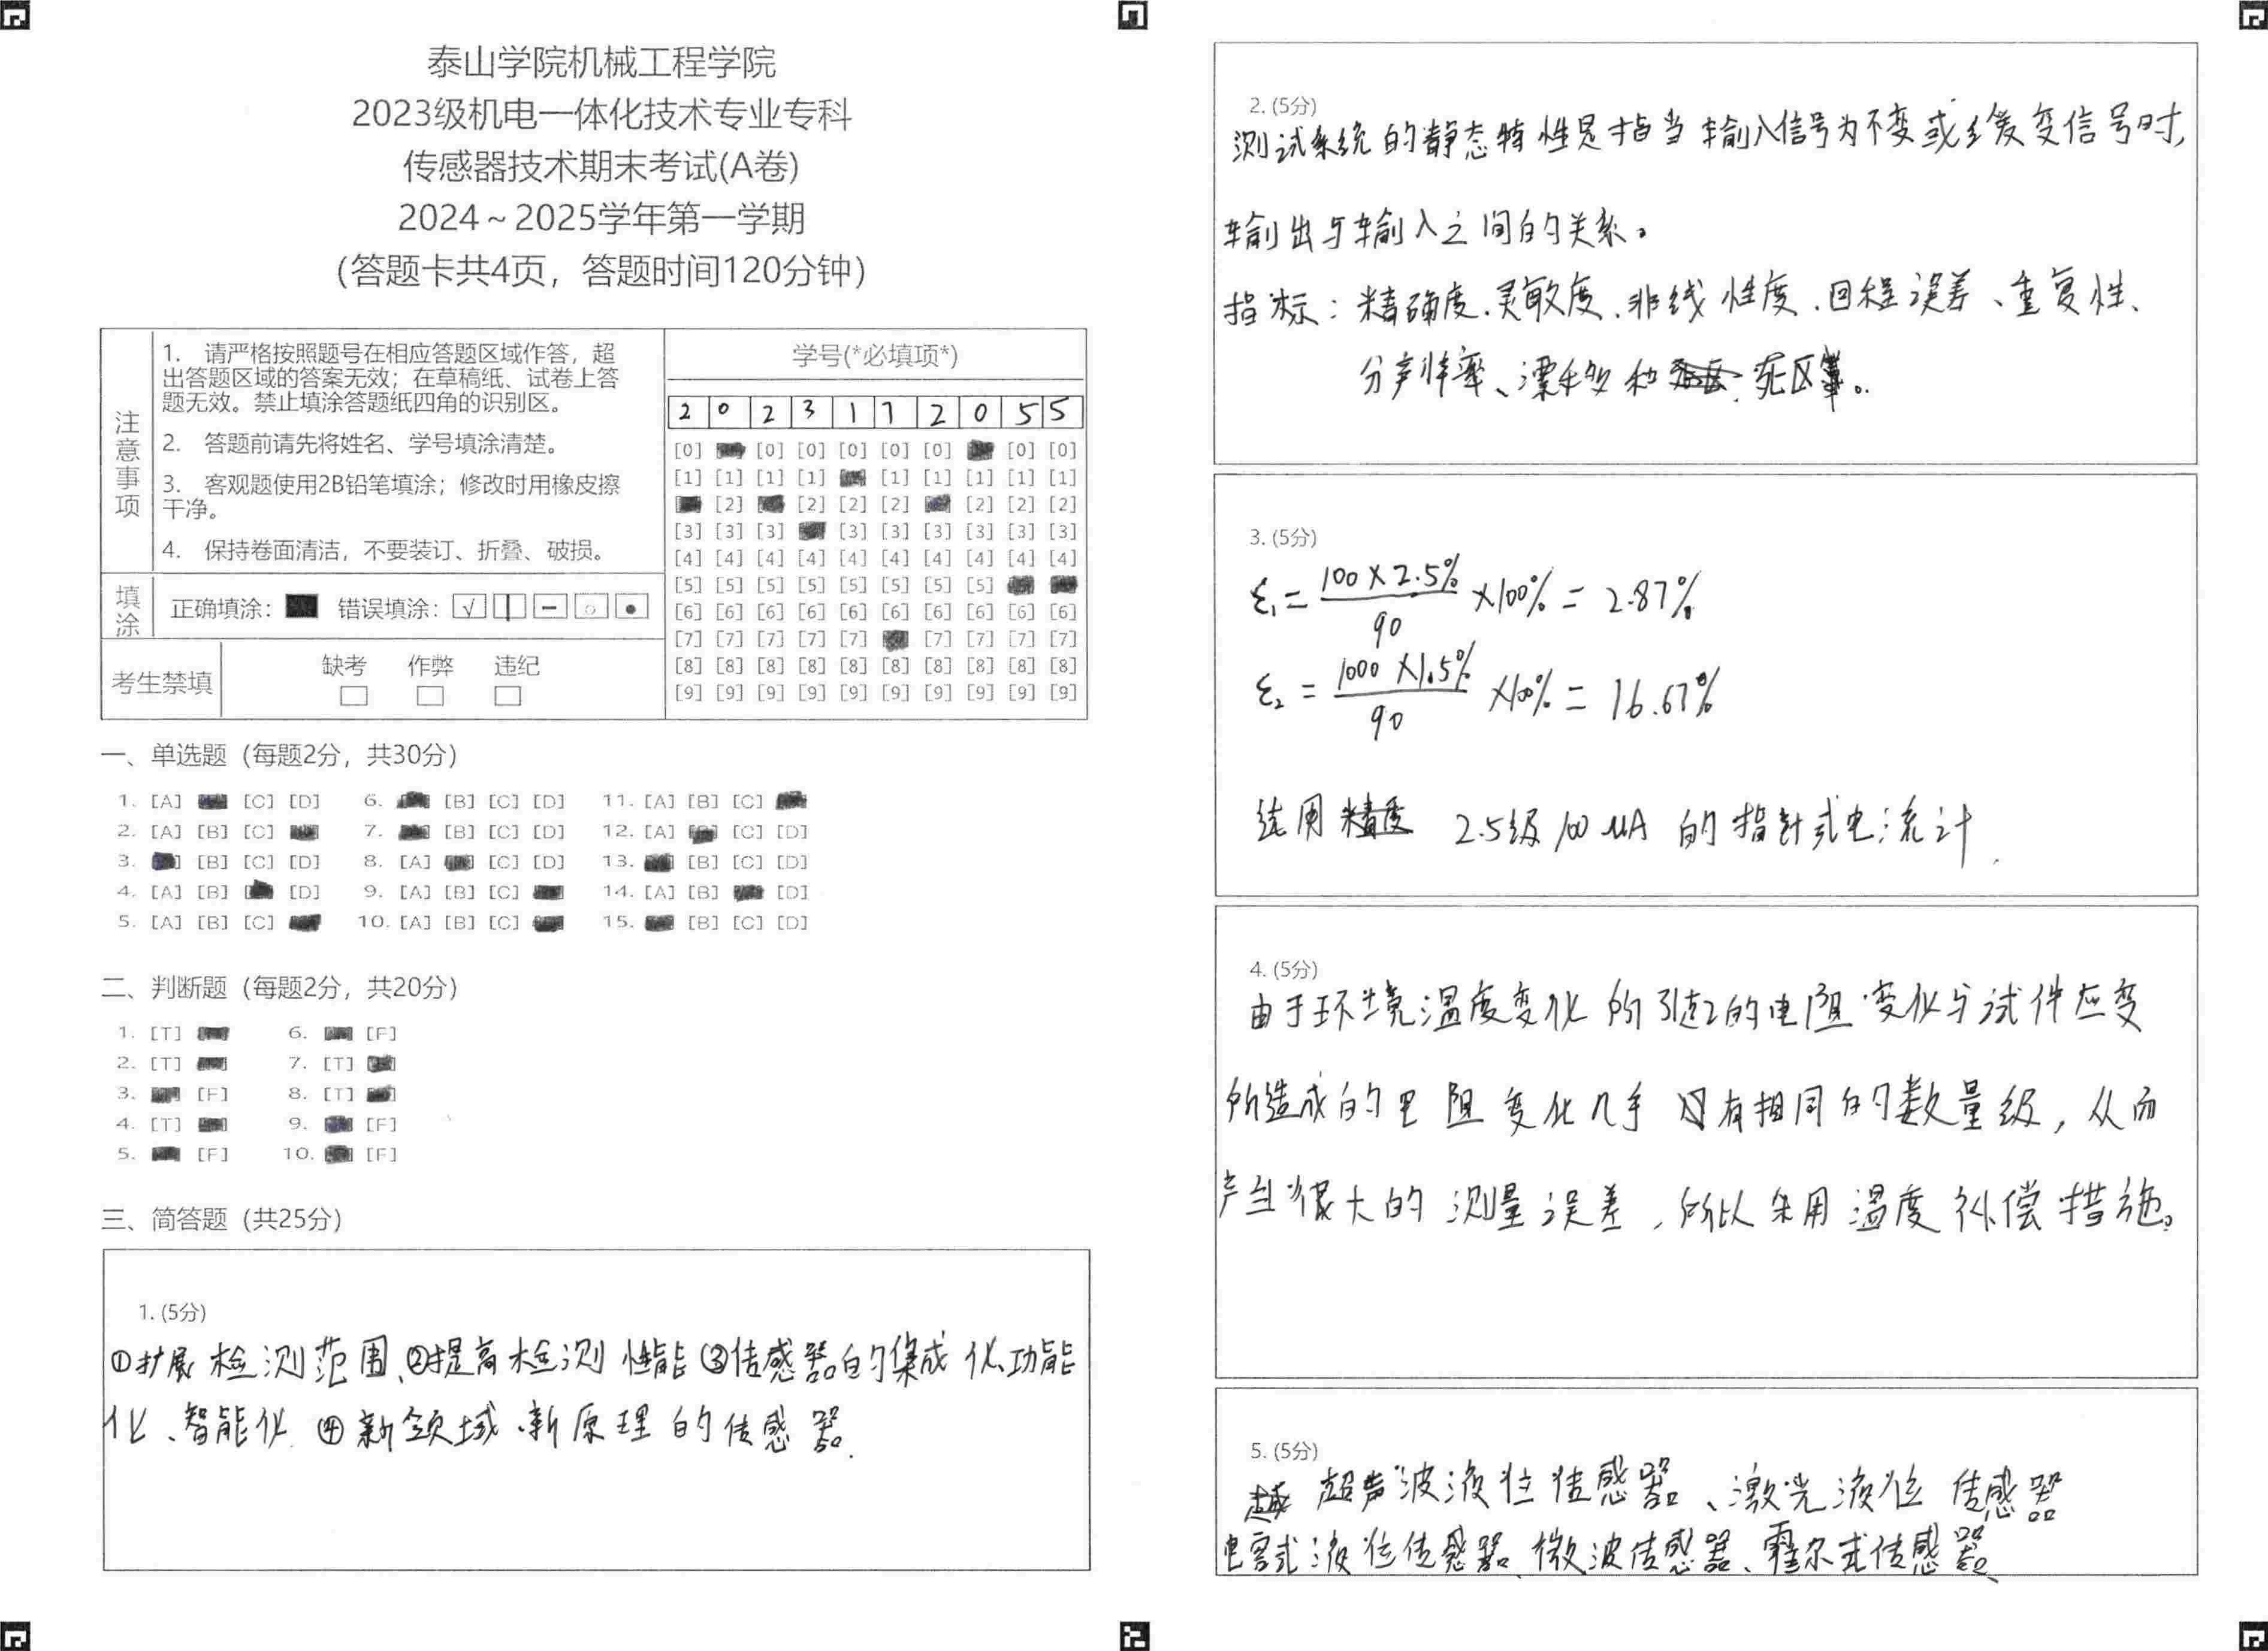 泰山学院机械工程学院
2023级机电一体化技术专业专科
传感器技术期末考试(A卷)
2024~2025学年第一学期
(答题卡共4页，答题时间120分钟)
注意事项
1. 请严格按照题号在相应答题区域作答，超
出答题区域的答案无效；在草稿纸、试卷上答
题无效。禁止填涂答题纸四角的识别区。
2. 答题前请先将姓名、学号填涂清楚。
3. 客观题使用2B铅笔填涂；修改时用橡皮擦
干净。
4. 保持卷面清洁，不要装订、折叠、破损。
填涂
正确填涂： 错误填涂：
考生禁填
缺考 作弊 违纪
学号(*必填项*)
2 0 2 3 1 7 2 0 5 5
[0] [0] [0] [0] [0] [0] [0] [0]
[1] [1] [1] [1] [1] [1] [1] [1] [1]
[2] [2] [2] [2] [2] [2] [2]
[3] [3] [3] [3] [3] [3] [3] [3] [3]
[4] [4] [4] [4] [4] [4] [4] [4] [4] [4]
[5] [5] [5] [5] [5] [5] [5] [5]
[6] [6] [6] [6] [6] [6] [6] [6] [6] [6]
[7] [7] [7] [7] [7] [7] [7] [7] [7]
[8] [8] [8] [8] [8] [8] [8] [8] [8] [8]
[9] [9] [9] [9] [9] [9] [9] [9] [9] [9]
一、单选题（每题2分，共30分）
1. [A] [C] [D] 6. [B] [C] [D] 11. [A] [B] [C]
2. [A] [B] [C] 7. [B] [C] [D] 12. [A] [C] [D]
3. [B] [C] [D] 8. [A] [C] [D] 13. [B] [C] [D]
4. [A] [B] [D] 9. [A] [B] [C] 14. [A] [B] [D]
5. [A] [B] [C] 10. [A] [B] [C] 15. [B] [C] [D]
二、判断题（每题2分，共20分）
1. [T] 6. [F]
2. [T] 7. [T]
3. [F] 8. [T]
4. [T] 9. [F]
5. [F] 10. [F]
三、简答题（共25分）
1. (5分)
①扩展检测范围、②提高检测性能③传感器的集成化、功能
化、智能化 ④新领域、新原理的传感器.
2. (5分)
测试系统的静态特性是指当输入信号为不变或缓变信号时,
输出与输入之间的关系。
指标：精确度、灵敏度、非线性度、回程误差、重复性、
分辨率、漂移和 死区等。
3. (5分)
ε₁= 100×2.5%/90 ×100% = 2.87%
ε₂ = 1000×1.5%/90 ×100% = 16.67%
选用精度 2.5级100μA 的指针式电流计.
4. (5分)
由于环境温度变化所引起的电阻变化与试件应变
所造成的电阻变化几乎具有相同的数量级，从而
产生很大的测量误差，所以采用温度补偿措施。
5. (5分)
超声波液位传感器、激光液位传感器
电容式液位传感器、微波传感器、霍尔式传感器、